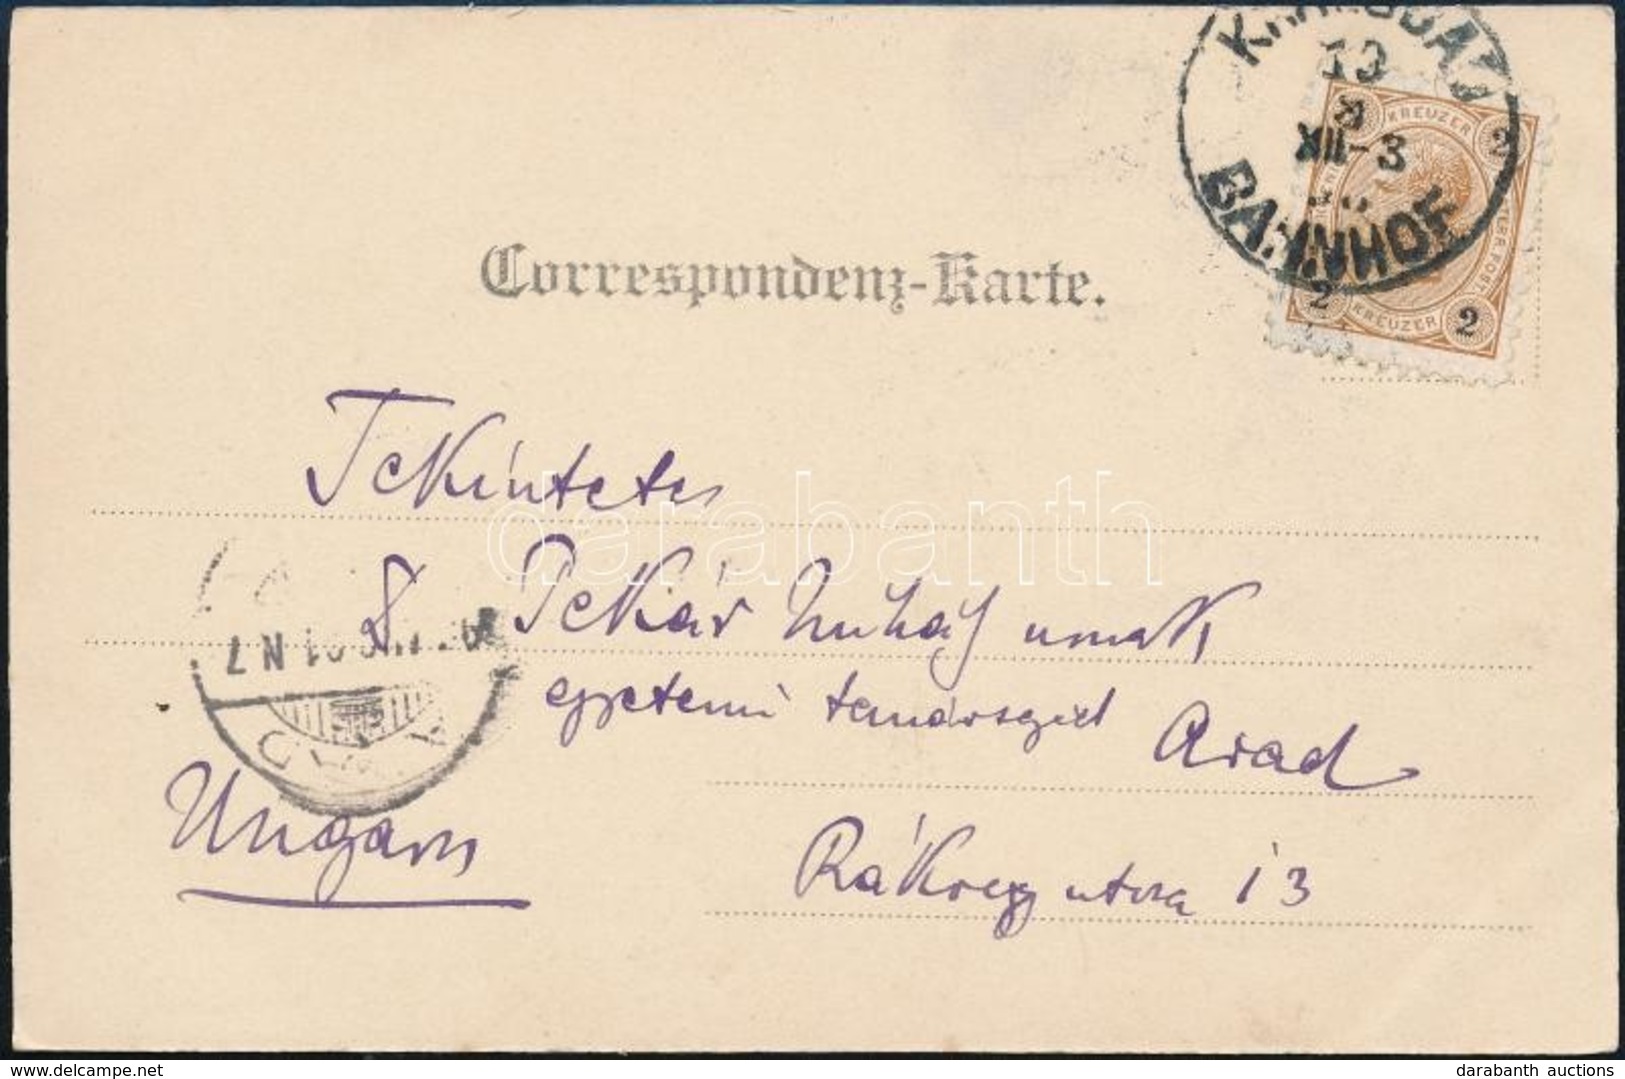 KARLSBAD
13
XII-3
BAHNHOF
KREUZER
2
2
2
KREUZER
Correspondenz-Karte.
Tekintetes
Dr Pekár Mihály urnak
egyetemi tanársegéd Arad
Ungarn
Rákóczy utca 13
darabanth
delcampe.net
darabanth auctions